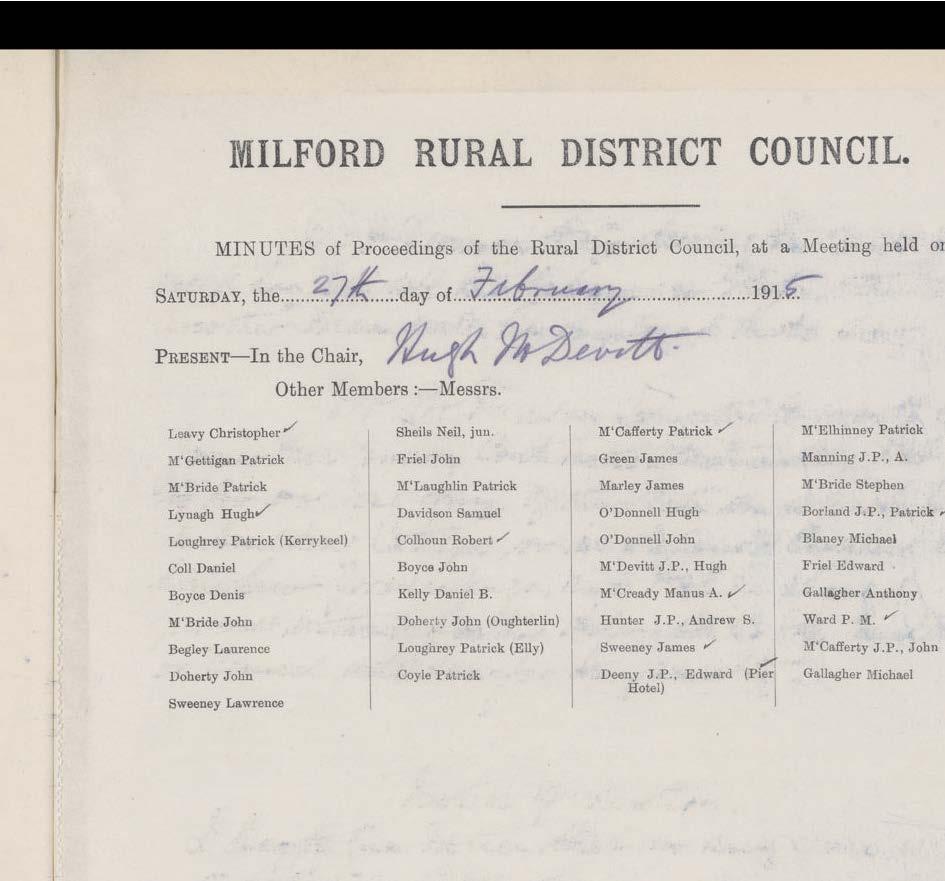 MILFORD RURAL DISTRICT COUNCIL.
MINUTES of Proceedings of the Rural District Council, at a Meeting held on
SATURDAY, the......27th......day of...February........................1915.
PRESENT—In the Chair, Hugh McDevitt.
Other Members :—Messrs.
Leavy Christopher ✓
M‘Gettigan Patrick
M‘Bride Patrick
Lynagh Hugh ✓
Loughrey Patrick (Kerrykeel)
Coll Daniel
Boyce Denis
M‘Bride John
Begley Laurence
Doherty John
Sweeney Lawrence
Sheils Neil, jun.
Friel John
M‘Laughlin Patrick
Davidson Samuel
Colhoun Robert ✓
Boyce John
Kelly Daniel B.
Doherty John (Oughterlin)
Loughrey Patrick (Elly)
Coyle Patrick
M‘Cafferty Patrick ✓
Green James
Marley James
O’Donnell Hugh
O’Donnell John
M‘Devitt J.P., Hugh
M‘Cready Manus A. ✓
Hunter J.P., Andrew S.
Sweeney James ✓
Deeny J.P., Edward (Pier ✓
Hotel)
M‘Elhinney Patrick
Manning J.P., A.
M‘Bride Stephen
Borland J.P., Patrick ✓
Blaney Michael
Friel Edward
Gallagher Anthony
Ward P. M. ✓
M‘Cafferty J.P., John
Gallagher Michael